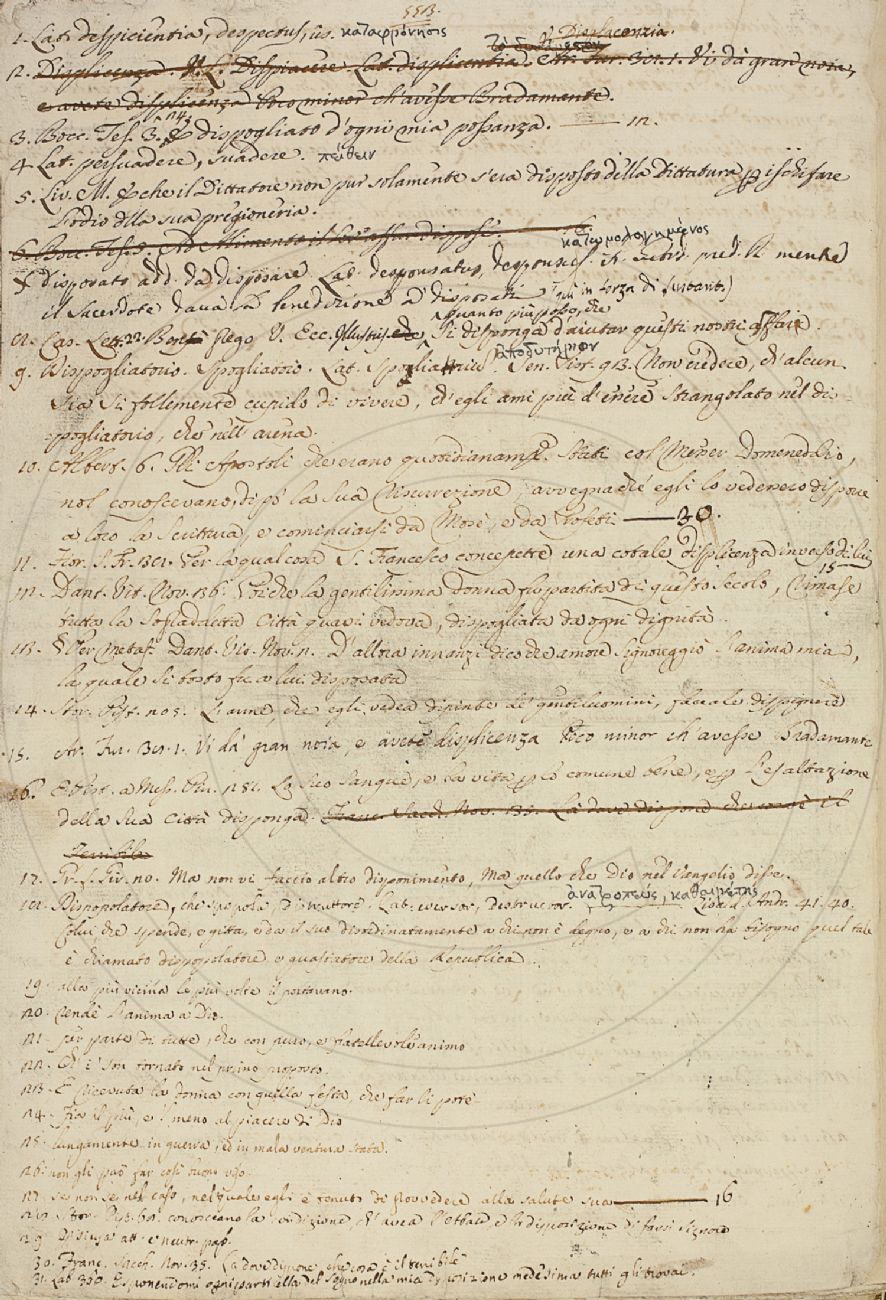 553.
1. Lat. despicientia, despectus, us. καταφρόνησις
τὸ Displacenzia.
2. Displicenza. V. L. Dispiacere Lat. displicentia. Ar. Fur. 30. 1. Vi dà gran noia,
e avete displicenza Poco minor ch'avesse Bradamante.
3. Bocc. Tes. 3. dispogliato d'ogni mia possanza.
4. Lat. persuadere, suadere. πείθειν
5. Liv. M. che il Dittatore non pur solamente s'era disposto della Dittatura disfare
l'odio della sua pregioneria.
6. Bocc. Tes.
7. Disposato add. da disposare Lat. desponsatus, καθωμολογημένος
il Sacerdote dava la benedizione a' disposati (qui in forza di sustant.)
quanto più posso, che
Cas. Lett. 22. prego V. Ecc. Illustriss. si disponga d'aiutar questi nostri affari.
ἀποδυτήριον
9. Dispogliatorio. Spogliatoio. Lat. Sen. Pist. Non credere, ch'alcun
sia sì follemente cupido di vivere, ch'egli ami più d'essere strangolato nel di-
spogliatorio, che nell'arena.
10. Albert. 6. Gli Apostoli che erano quotidianam. stati col Messer Domeneddio,
nol conoscevano, dipo' la sua Risurrezione, avvegnachè egli lo vedessero disporre
a loro la Scrittura, e cominciarsi da Moisè, e da Profeti. —— 30.
11. Fior. S. Fr. Per la qual cosa S. Francesco concepette una cotale displicenza inverso di lui
15
12. Dant. Vit. Nov. 36. Poichè la gentilissima donna fu partita di questo secolo, rimase
tutta la sopraddetta Città quasi vedova, dispogliata da ogni dignità.
13. Per metaf. Dant. Vit. Nov. D'allora innanzi dico che amore signoreggiò l'anima mia,
la quale sì tosto fu a lui disposata
14. Stor. Pist. L'arme, che egli vedea dipinte de' gentiluomini, faceale dispignere
15. Ar. Fur. 30. 1. Vi dà gran noia, e avete displicenza Poco minor ch'avesse Bradamante
16. Pist. a Mess. Lo suo sangue, e la vita lo comune bene, e l'esaltazione
della sua Città disponga. Franc. Sacch. Nov. 35. Là dove dispone che cosa è il
Terribile
17. Fr. Giord. Ma non vi faccio altro disponimento, ma quello che Dio nel Vangelo disse.
Dispopolatore, che spopola, Distruttore. Lat. eversor, destructor. ἀνατροπεύς, καθαιρέτης 41. 40.
Colui che spende, e gitta, e dà il suo disordinatamente a chi non è degno, e a chi non ha bisogno quel tale
è chiamato dispopolatore, e guastatore della Repubblica.
19. alla più vicina le più volte il portavano.
20. rende l'anima a Dio.
per parte di tutte, che con puro, e fratellevole animo
ch'i' son tornato nel primo proposto.
E ricevuta la donna con quella festa, che far si potè
Fra il più, e 'l meno al piacere di Dio
lungamente in guerra, ed in mala ventura stata.
26. non gli può far così buono viso.
27. se non se nel caso, nel quale egli è tenuto di provvedere alla salute sua —— 16
Stor. Pist. 60. conosceano la condizione, ch'avea l'Abate e la disposizione di farsi Signore
29. Disusa att. e neutr. pass.
30. Franc. Sacch. Nov. 35. La dove dispone, che cosa è il terribile
31. Lab. 360. Esponendomi ogni particella del sogno nella mia disposizione medesima tutti gli trovai.